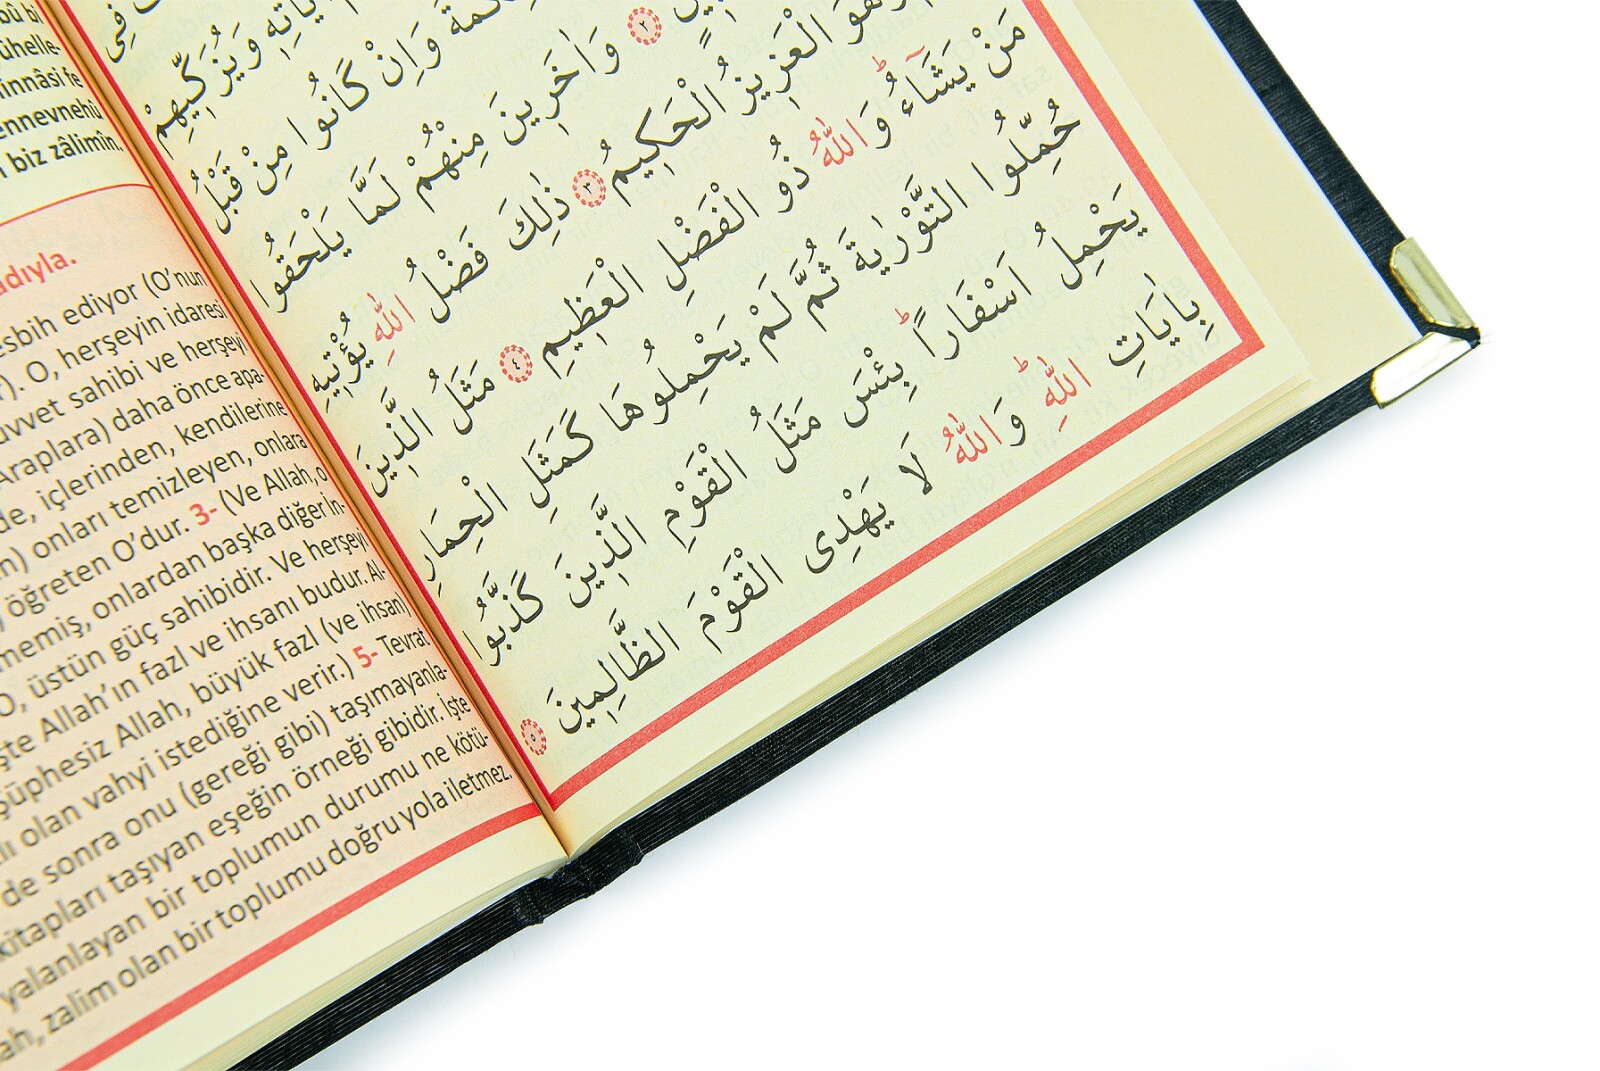 ûhelle-
innâsi fe
ennevnehû
biz zâlimîn.
adıyla.
esbih ediyor (O'nun
O, herşeyin idaresi
uvvet sahibi ve herşeyi
Araplara) daha önce apa-
de, içlerinden, kendilerine
onları temizleyen, onlara
öğreten O'dur. 3- (Ve Allah, o
memiş, onlardan başka diğer in-
O, üstün güç sahibidir. Ve herşeyi
şte Allah'ın fazl ve ihsanı budur. Al-
şüphesiz Allah, büyük fazl (ve ihsan)
olan vahyi istediğine verir.) 5- Tevrat
de sonra onu (gereği gibi) taşımayanla-
kitapları taşıyan eşeğin örneği gibidir. İşte
yalanlayan bir toplumun durumu ne kötü-
ah, zalim olan bir toplumu doğru yola iletmez.
وَيُزَكِّيهِمْ
وَاِنْ كَانُوا مِنْ قَبْلُ
٢ وَاٰخَرِينَ مِنْهُمْ لَمَّا يَلْحَقُوا
الْعَزِيزُ الْحَكِيمُ ٣ ذٰلِكَ فَضْلُ اللّٰهِ يُؤْتِيهِ
مَنْ يَشَٓاءُۜ وَاللّٰهُ ذُو الْفَضْلِ الْعَظِيمِ ٤ مَثَلُ الَّذِينَ
حُمِّلُوا التَّوْرٰيةَ ثُمَّ لَمْ يَحْمِلُوهَا كَمَثَلِ الْحِمَارِ
يَحْمِلُ اَسْفَارًاۜ بِئْسَ مَثَلُ الْقَوْمِ الَّذِينَ كَذَّبُوا
بِاٰيَاتِ اللّٰهِۜ وَاللّٰهُ لَا يَهْدِى الْقَوْمَ الظَّالِمِينَ ٥